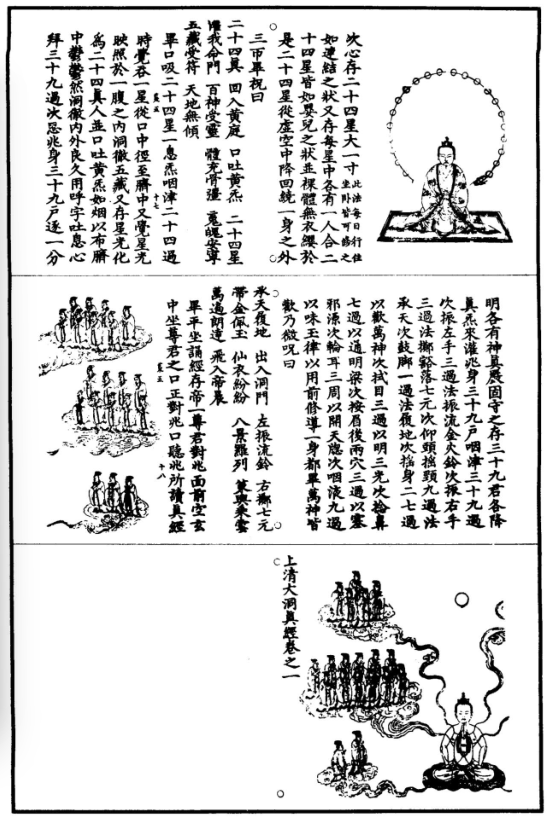 次心存二十四星大一寸此法每日行住坐卧皆可修之
如連結之狀又存每星中各有一人合二
十四星皆如嬰兒之狀並裸體無衣纓於
是二十四星從虛空中降回繞一身之外
三帀畢祝曰
二十四真　回入黃庭　口吐黃炁　二十四星
灌我命門　百神受靈　體充骨彊　䰟魄安寧
五藏受符　天地無傾
畢口吸二十四星一息炁咽津二十四過
時覺吞一星從口中徑至臍中又覺星光
映照於一腹之内洞徹五藏又存星光化
為二十四真人並口吐黃炁如烟以布臍
中鬱鬱然洞徹内外良久用呼字吐息心
拜三十九過次忌兆身三十九戸逐一分
明各有神真嚴固守之存三十九君各降
真炁來灌兆身三十九戸咽津三十九過
次振左手三過法振流金火鈴次振右手
三過法擲豁落七元次仰頭搖頸九過法
承天次鼓脚一過法覆地次搖身二七過
以歡萬神次拭目三過以明三光次捻鼻
七過以通明梁次按眉後兩穴三過以塞
邪源次輪耳三周以開天聰次咽液九過
以味玉律以用前修導一身都畢萬神皆
歡乃微呪曰
承天覆地　出入洞門　左振流鈴　右擲七元
帶金佩玉　仙衣紛紛　八景羅列　策輿乘雲
萬過朗達　飛入帝晨
畢平坐誦經存帝一尊君對兆面前空玄
中坐尊君之口正對兆口聽兆所讀真經
上清大洞真經卷之一